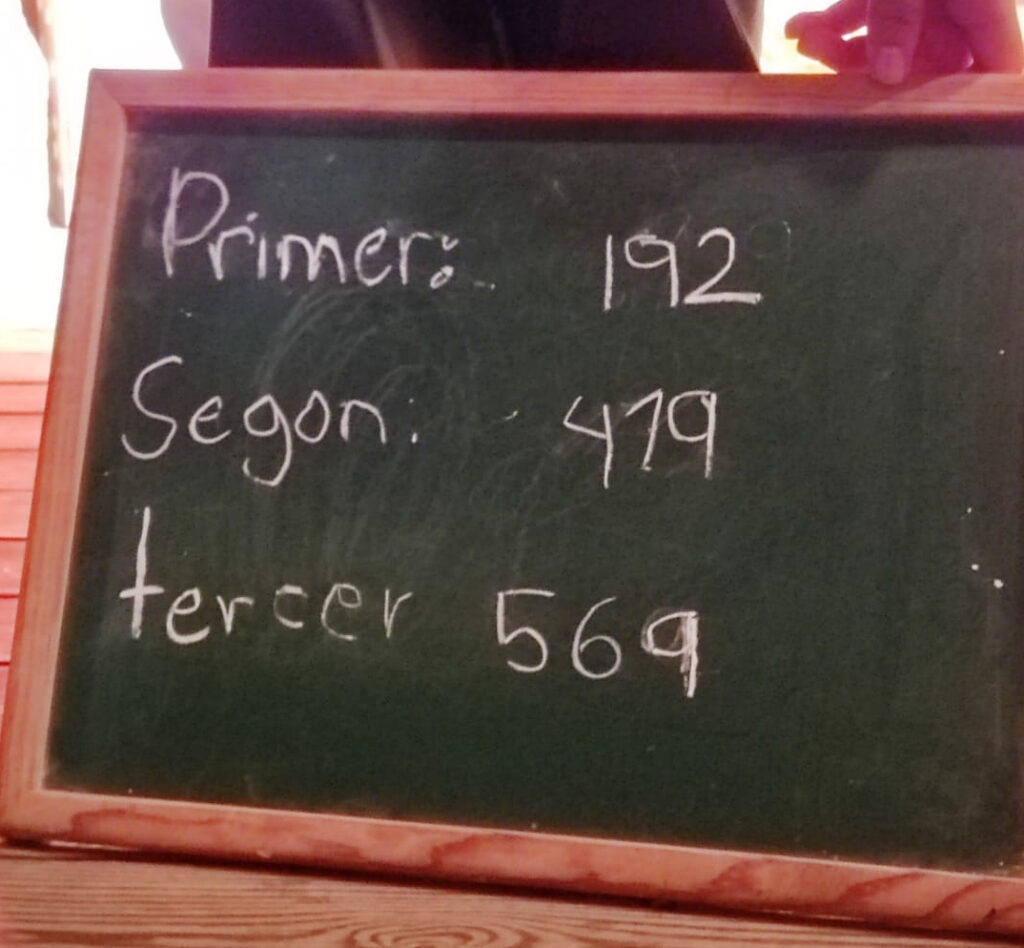 Primer: 192
Segon: 479
tercer 569